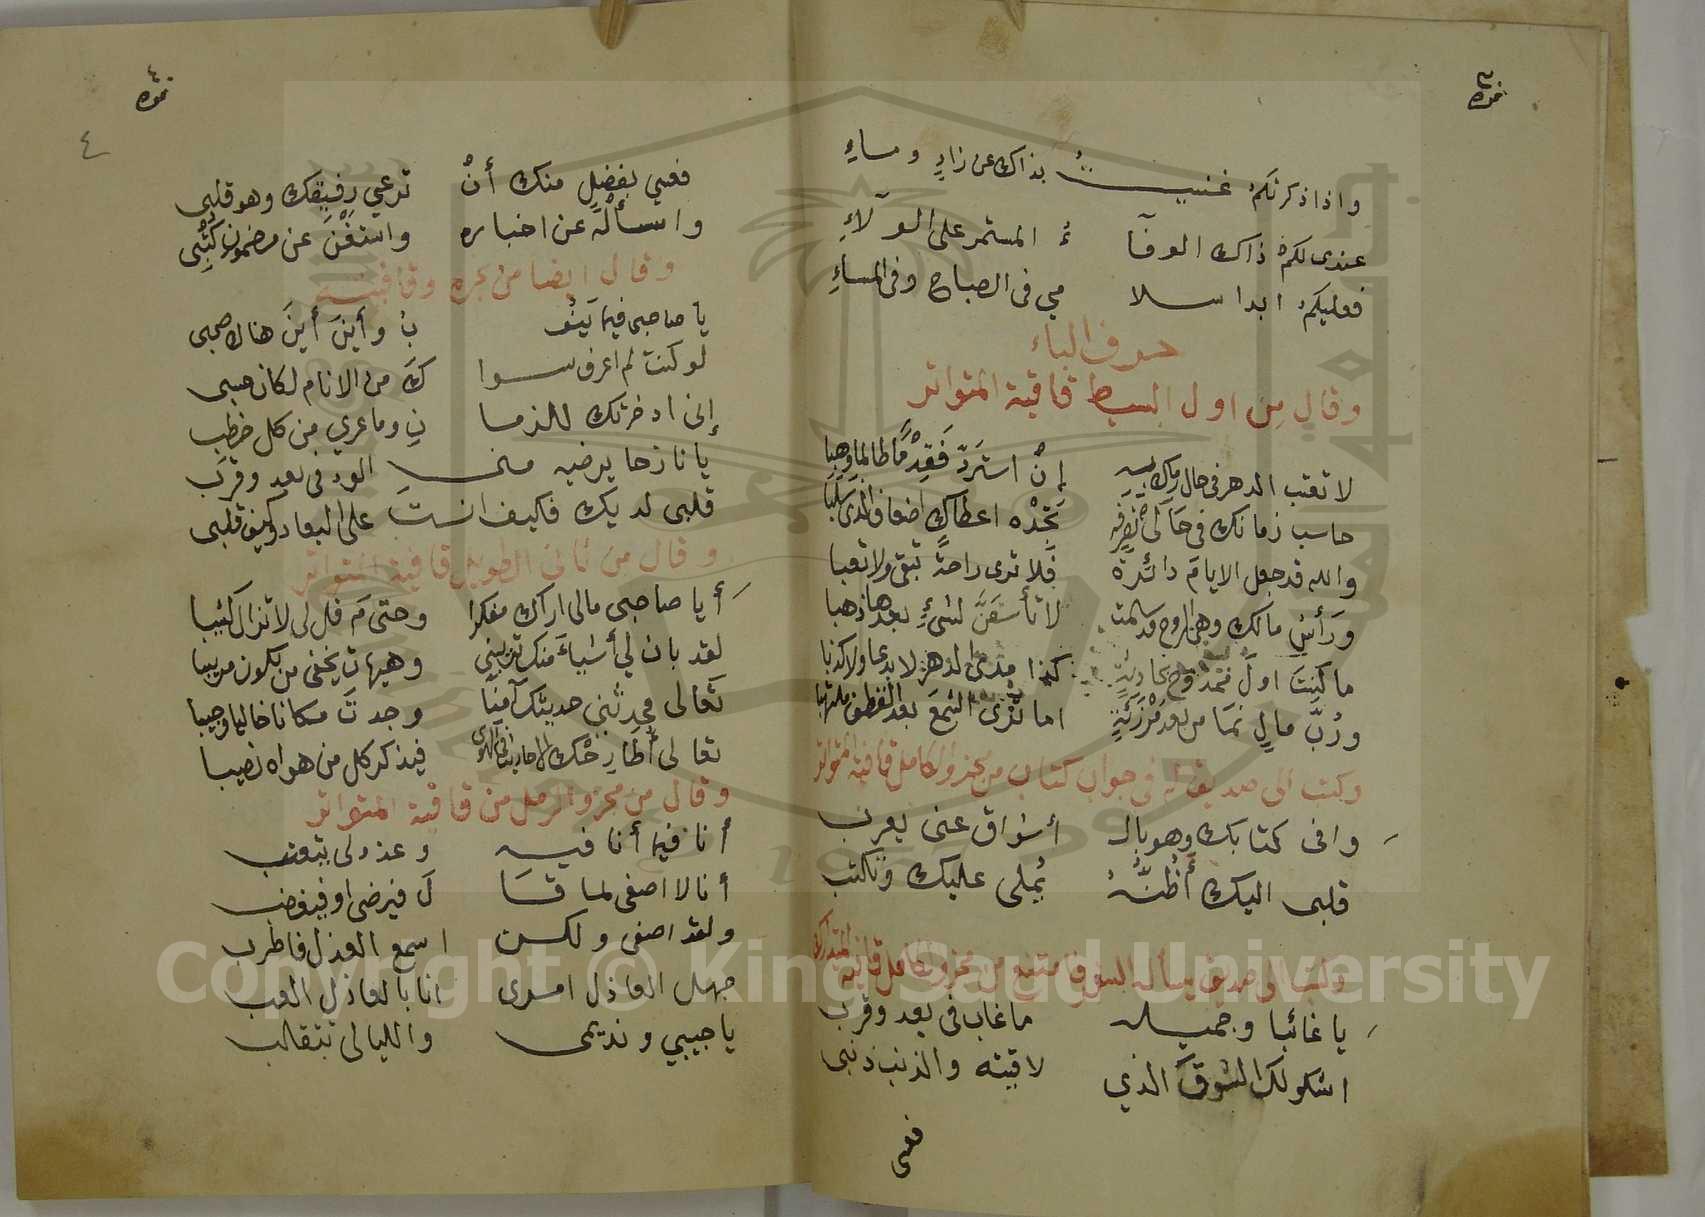 واذا ذكرتكم غنيـــتُ بذاك عن زادٍ وماءِ
عندى لكم ذاك الوفآ ءُ المستمر على الولآءِ
فعليكم ابدا سلا مي فى الصباح وفى المساءِ
حرف الباء
وقال من اول البسيط قافية المتواتر
لا تعتب الدهر فى حال رماك به إنْ استردّ فَقِدْمًا طالما وهبا
حاسب زمانك فى حَالَى تصرفه تجدْه اعطاك اضعاف الذى سلبا
والله قد جعل الايامَ دائرة فلا ترى راحة تبقى ولا تعبا
ورَأسُ مالك وهى الروح قد سلمت لا تأسفَنَّ لشىءٍ بعدها ذهبا
ما كنتَ اولَ ممنوٍّ بحادثةٍ كذا مضى الدهر لا بدعا ولا كذبا
ورُبَّ مالٍ نما من بعد مَرْزَئَةٍ اما تَرَى الشمعَ بعد القط ملتهبا
وكتب الى صديق له فى جواب كتاب من مجزو الكامل قافية المتواتر
وافى كتابك وهو بالـ أشواق عنى يعرب
قلبى اليك أظنُّهُ يُملى عليك وتكتب
وكتب الى صديق يسأله السفر فامتنع من مجزو الكامل قافية المتدارك
يا غائبا وجميـــله ما غاب فى بعد وقرب
اشكو لك الشوق الذي لاقيته والذنب ذنبى
فعسى
نمره ٣
نمره ٤
٤
فعسى بفضلٍ منك أنْ ترعي رفيقك وهو قلبى
واسألْهُ عن اخباره واستغْنَ عن مضمون كُتْبِى
وقال ايضا من بحره وقافيته
يا صاحبى فيما يَنُو بُ وأينَ أينَ هناك صحبى
لو كنت لم اعرف سوا كَ من الانام لكان حسبى
إنى ادخرتك للزما نِ وما عرى من كل خطبِ
يا نازحا يرضيه منـ الود فى بعد وقرب
قلبى لديك فكيف انت على البعاد وكيف قلبى
وقال من ثانى الطويل قافية المتواتر
أيا صاحبى مالى اراك مفكرا وحتى مَ قل لى لا تزال كئيبا
لقد بان لي أشياءَ منك تريبنى وهيهات يخفى من يكون مريبا
تعالى فحدثني حديثك آمِنًا وجدتَ مكانا خاليا وحبيبا
تعالى أطَارِحْك الاحاديث فى الهوى فيذكر كل من هواه نصيبا
وقال من مجزو الرمل من قافية المتواتر
أنا فيما أنا فيـــه وعذولى يتعتب
أنا لا اصغى لما قــا لَ فيرضى او فيغضب
ولقد اصغى ولكـــن اسمع العذل فاطرب
جهل العاذل امـرى انا بالعاذل العب
يا حبيبي ونديمى والليالى تتقالب
Copyright © King Saud University